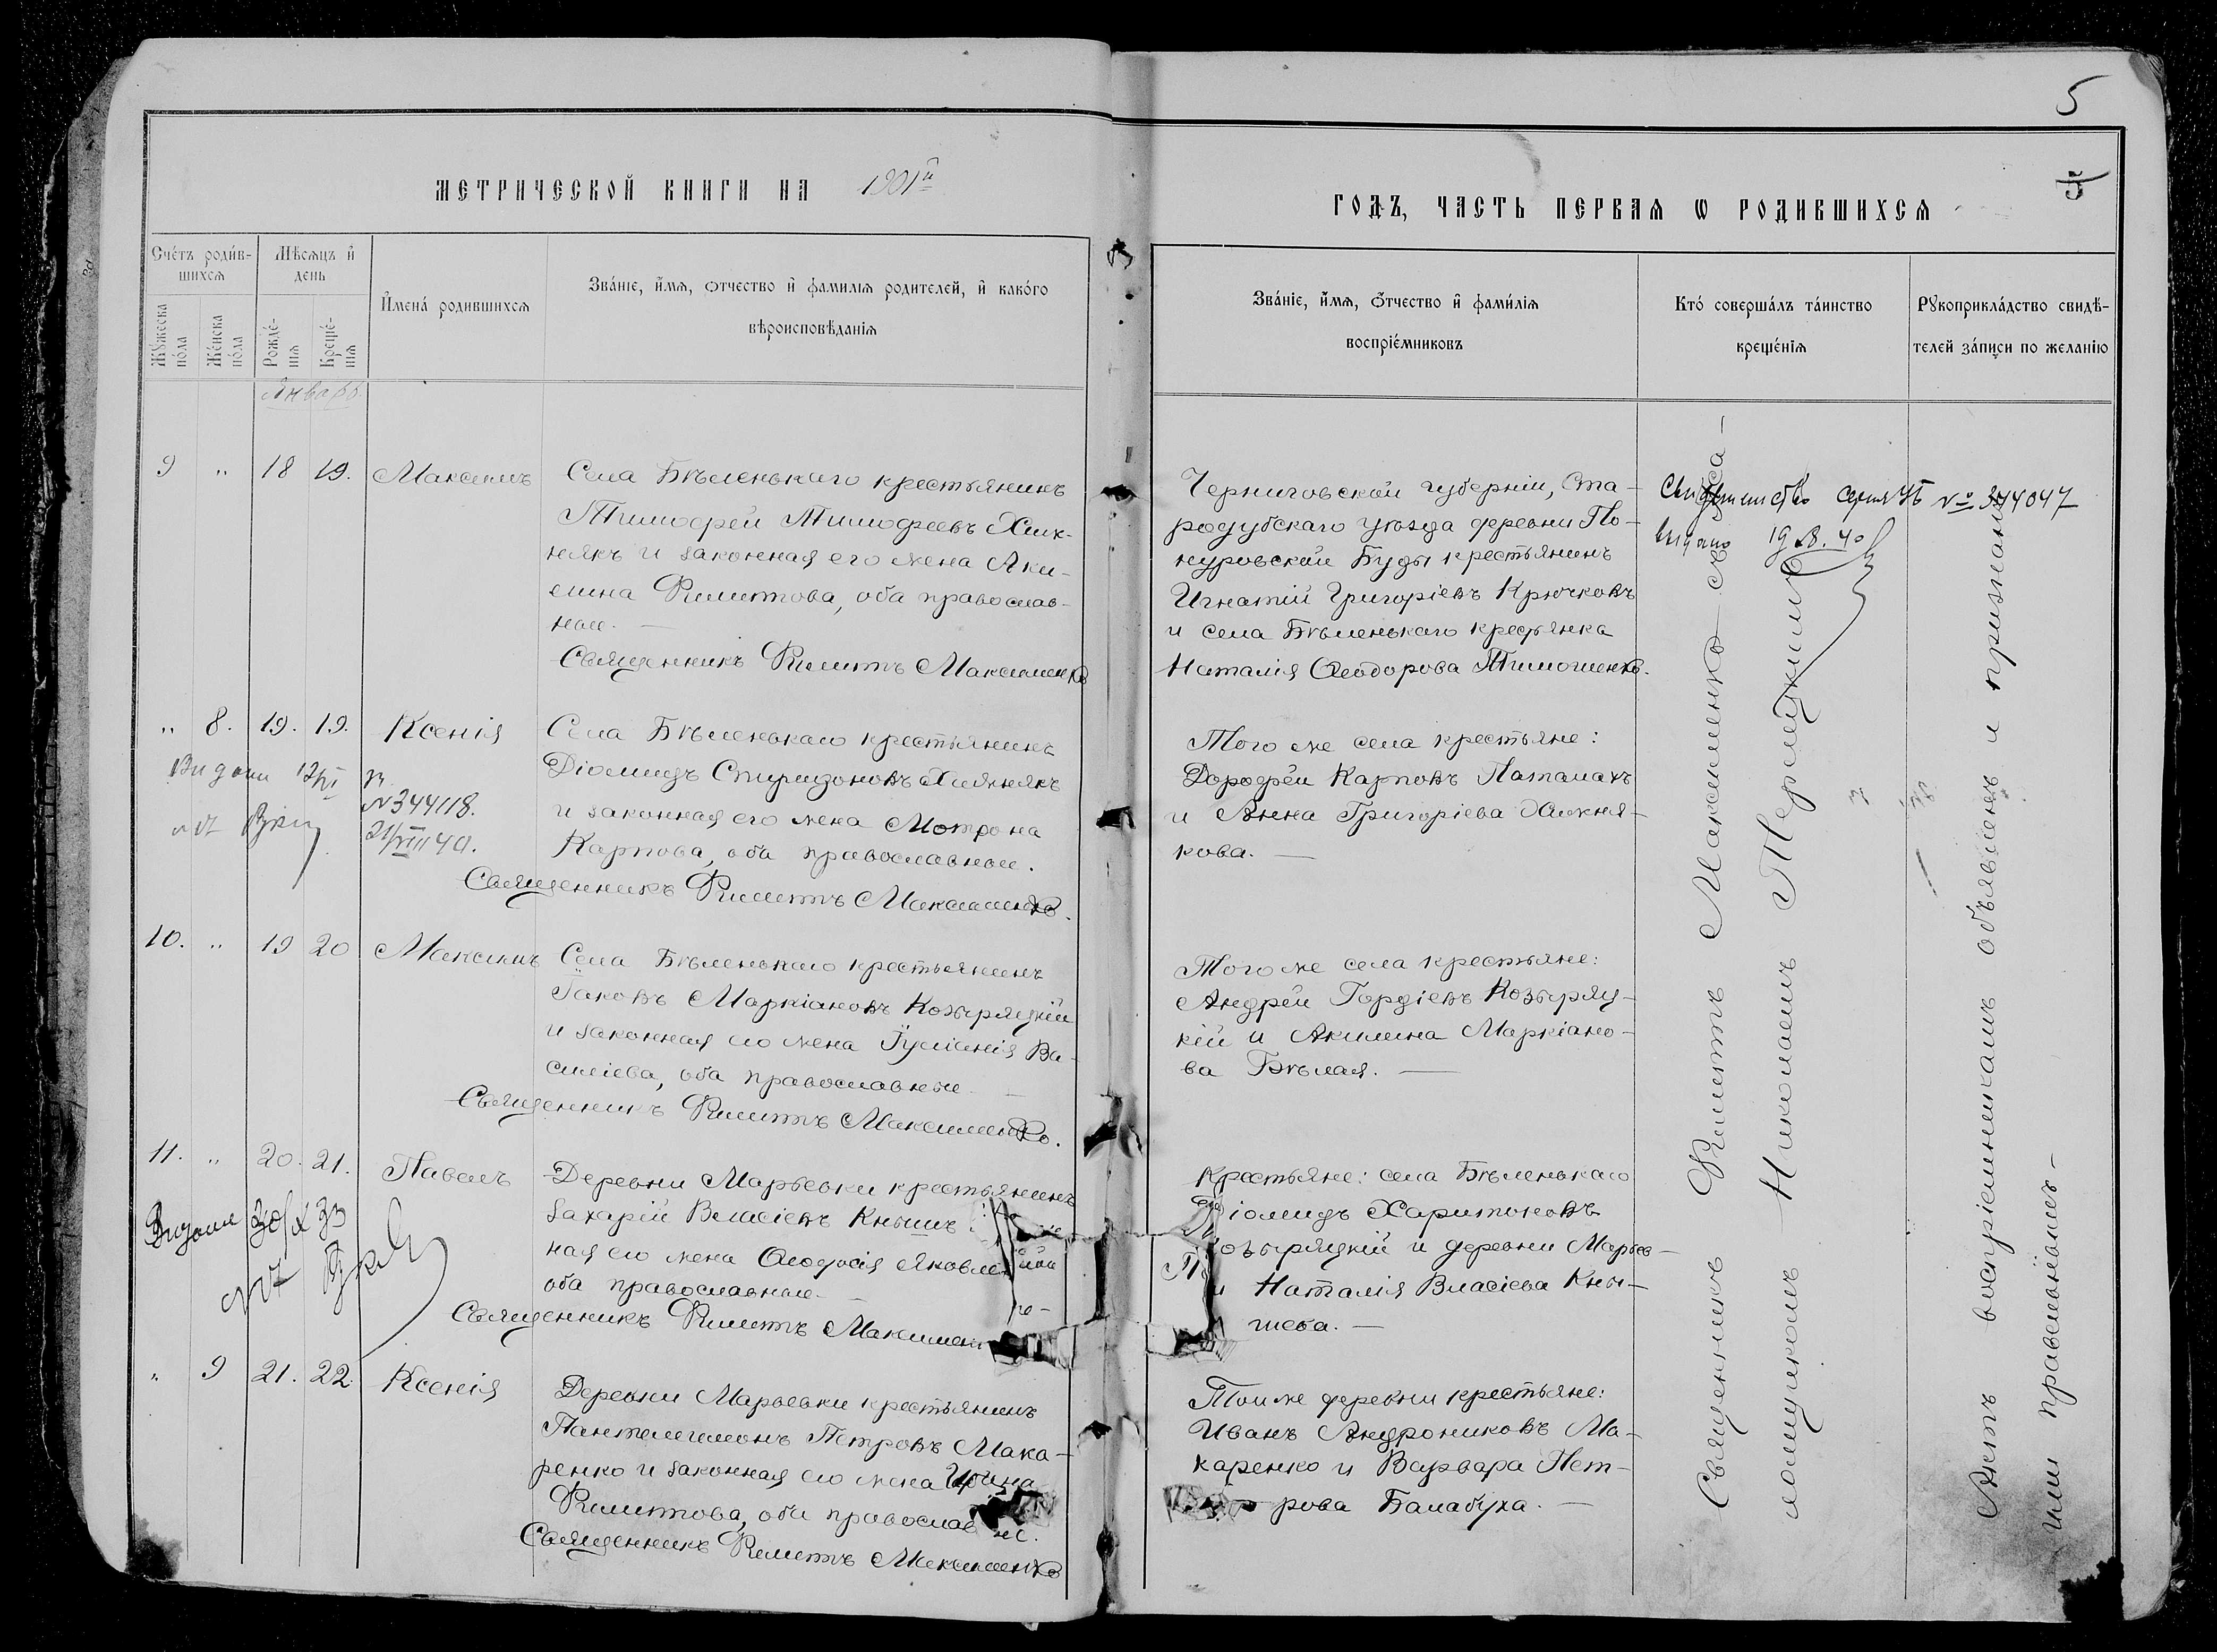 5
МЕТРИЧЕСКОЙ КНИГИ НА 1901й
ГОДЪ, ЧАСТЬ ПЕРВАЯ Ѡ РОДИВШИХСЯ
5
Счетъ родив-
шихся
Мѣсяцъ и
день
Мужеска
пола
Женска
пола
Рожде-
нія
Креще-
нія
Имена родившихся
Званіе, имя, отчество и фамилія родителей, и какого
вѣроисповѣданія
Званіе, имя, отчество и фамилія
воспріемниковъ
Кто совершалъ таинство
крещенія
Рукоприкладство свидѣ-
телей записи по желанію
Январь
9 " 18 19. Максимъ
Села Бѣленькаго крестьянинъ
Тимофей Тимофеевъ Хиж-
някъ и законная его жена Аки-
лина Филиппова, оба православ-
ные.
Священникъ Филиппъ Максименко
Черниговской губерніи, Ста-
родубскаго уѣзда деревни По-
нуровской Буды крестьянинъ
Игнатій Григоріевъ Крючковъ
и села Бѣленькаго крестьянка
Наталія Ѳеодорова Тимошенко.
Свидетельство серия № 344047
выдано 19.8.40
" 8. 19. 19. Ксенія
Видани
N 344118.
21/VIII 40.
Села Бѣленькаго крестьянинъ
Діомидъ Спиридоновъ Хижнякъ
и законная его жена Мотрона
Карпова, оба православные.
Священникъ Филиппъ Максименко.
Того же села крестьяне:
Дорофей Карповъ Паталахъ
и Анна Григоріева Хижня-
кова.
10. " 19 20 Максимъ
Села Бѣленькаго крестьянинъ
Іаковъ Маркіановъ Козыряцкій
и законная его жена Іуліанія Ва-
силіева, оба православные.
Священникъ Филиппъ Максименко.
Того же села крестьяне:
Андрей Гордіевъ Козыряц-
кій и Акилина Маркіано-
ва Бѣлая.
11. " 20. 21. Павелъ
Видани 30/X 33
Деревни Марьевки крестьянинъ
Захарій Власіевъ Кнышъ
ная его жена Ѳеодосія Яковле
оба православные.
Священникъ Филиппъ Максимен
Крестьяне: села Бѣленькаго
Діомидъ Харитоновъ
озыряцкій и деревни Марьев-
и Наталія Власіева Кны-
шева.
" 9 21. 22. Ксенія
Деревни Марьевки крестьянинъ
Пантелеимонъ Петровъ Мака-
ренко и законная его жена Ирина
Филиппова, оба православ
Священникъ Филиппъ Максименко
Той же деревни крестьяне:
Иванъ Андрониковъ Ма-
каренко и Варвара Пет-
рова Балабуха.
Священникъ Филиппъ Максименко съ пса-
ломщикомъ Николаемъ
Актъ воспріемникамъ объявленъ и признанъ
ими правильнымъ